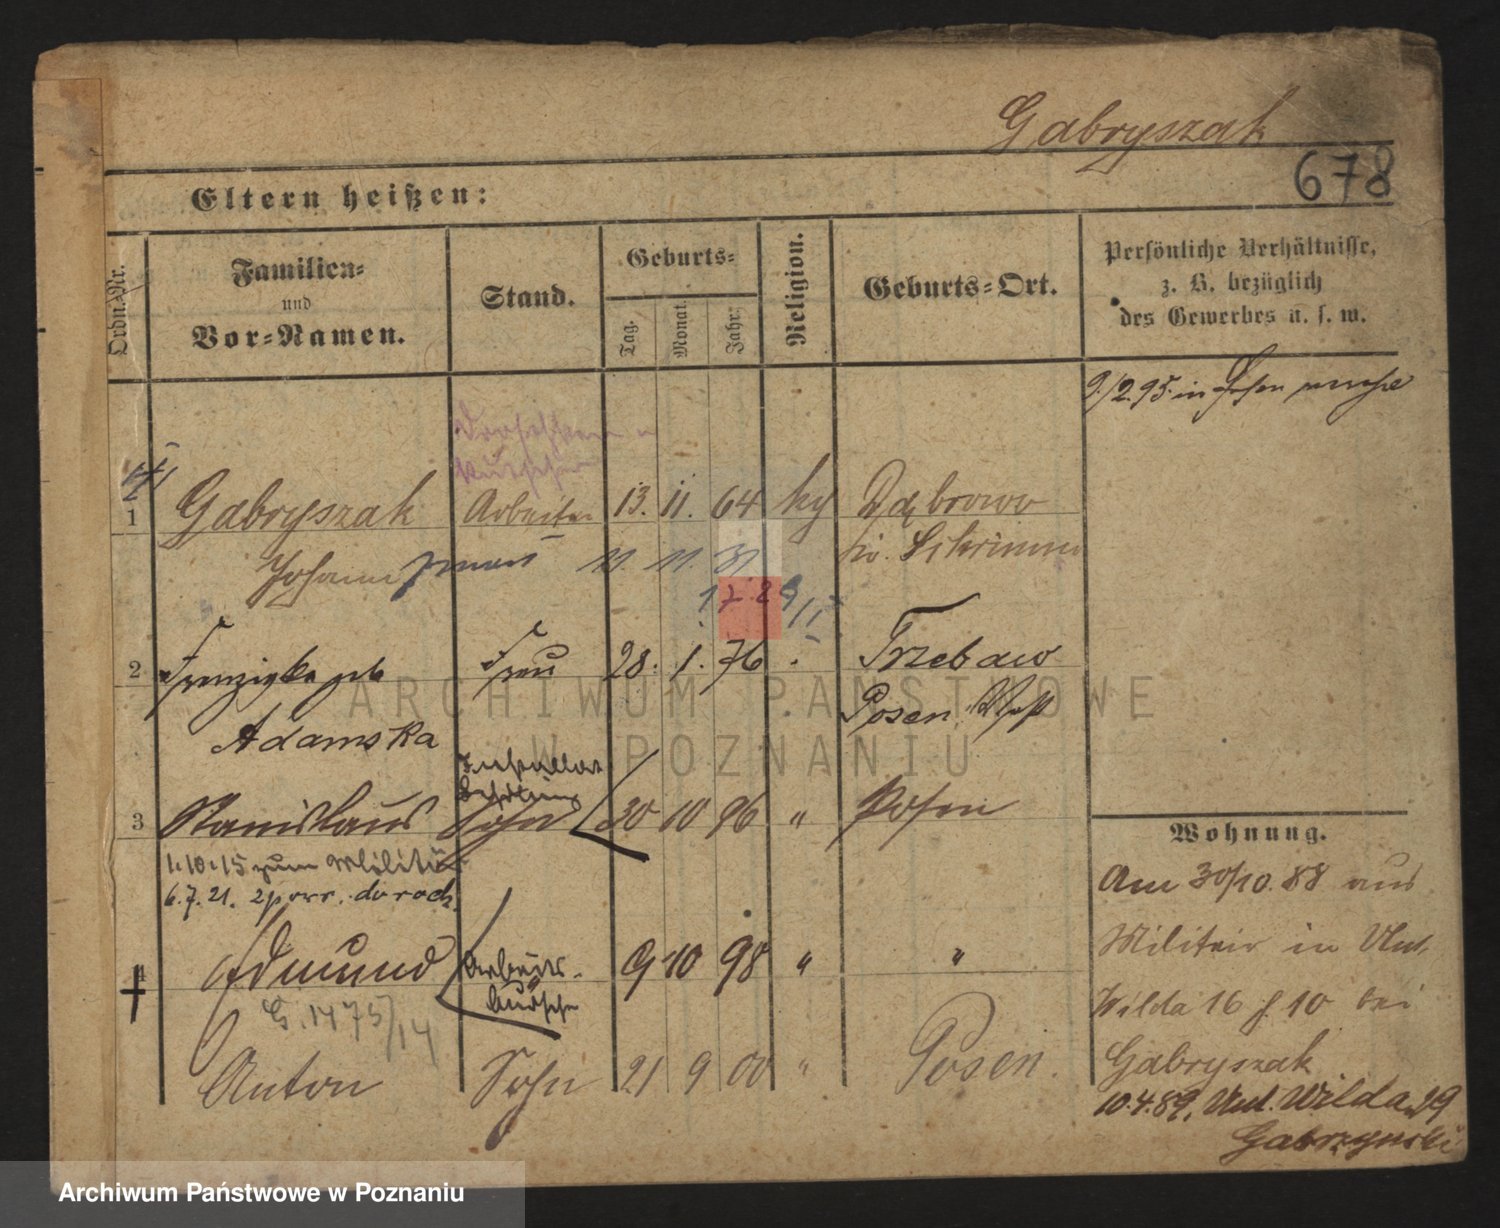 Gabryszak
678
Eltern heißen:
Ordn.-Nr.
Familien-
und
Vor-Namen.
Stand.
Geburts-
Tag.
Monat.
Jahr.
Religion.
Geburts-Ort.
Persönliche Verhältnisse,
z. B. bezüglich
des Gewerbes u. s. w.
9/2.95. in
1 Gabryszak Arbeiter 13. 11. 64 kg Dąbrowo
Johann 11. 11. 31 Schrimm
17.2
2 Franziska geb Frau 28. 1. 76 Trzebaw
Adamska Posen West
3 Stanislaus Sohn 30 10 96 " Posen
1.10.15 zum Militär
6.7.21.
4 Edmund Arbeits- 9 10 98 " "
bursche
G. 1475/14
Anton Sohn 21 9 00 " Posen.
Wohnung.
Am 30/10.88 aus
Militair in Unt.
Wilda 16 f. 10 bei
Gabryszak
10.4.89. Unt. Wilda 29
Gabrzynski
ARCHIWUM PAŃSTWOWE
W POZNANIU
Archiwum Państwowe w Poznaniu